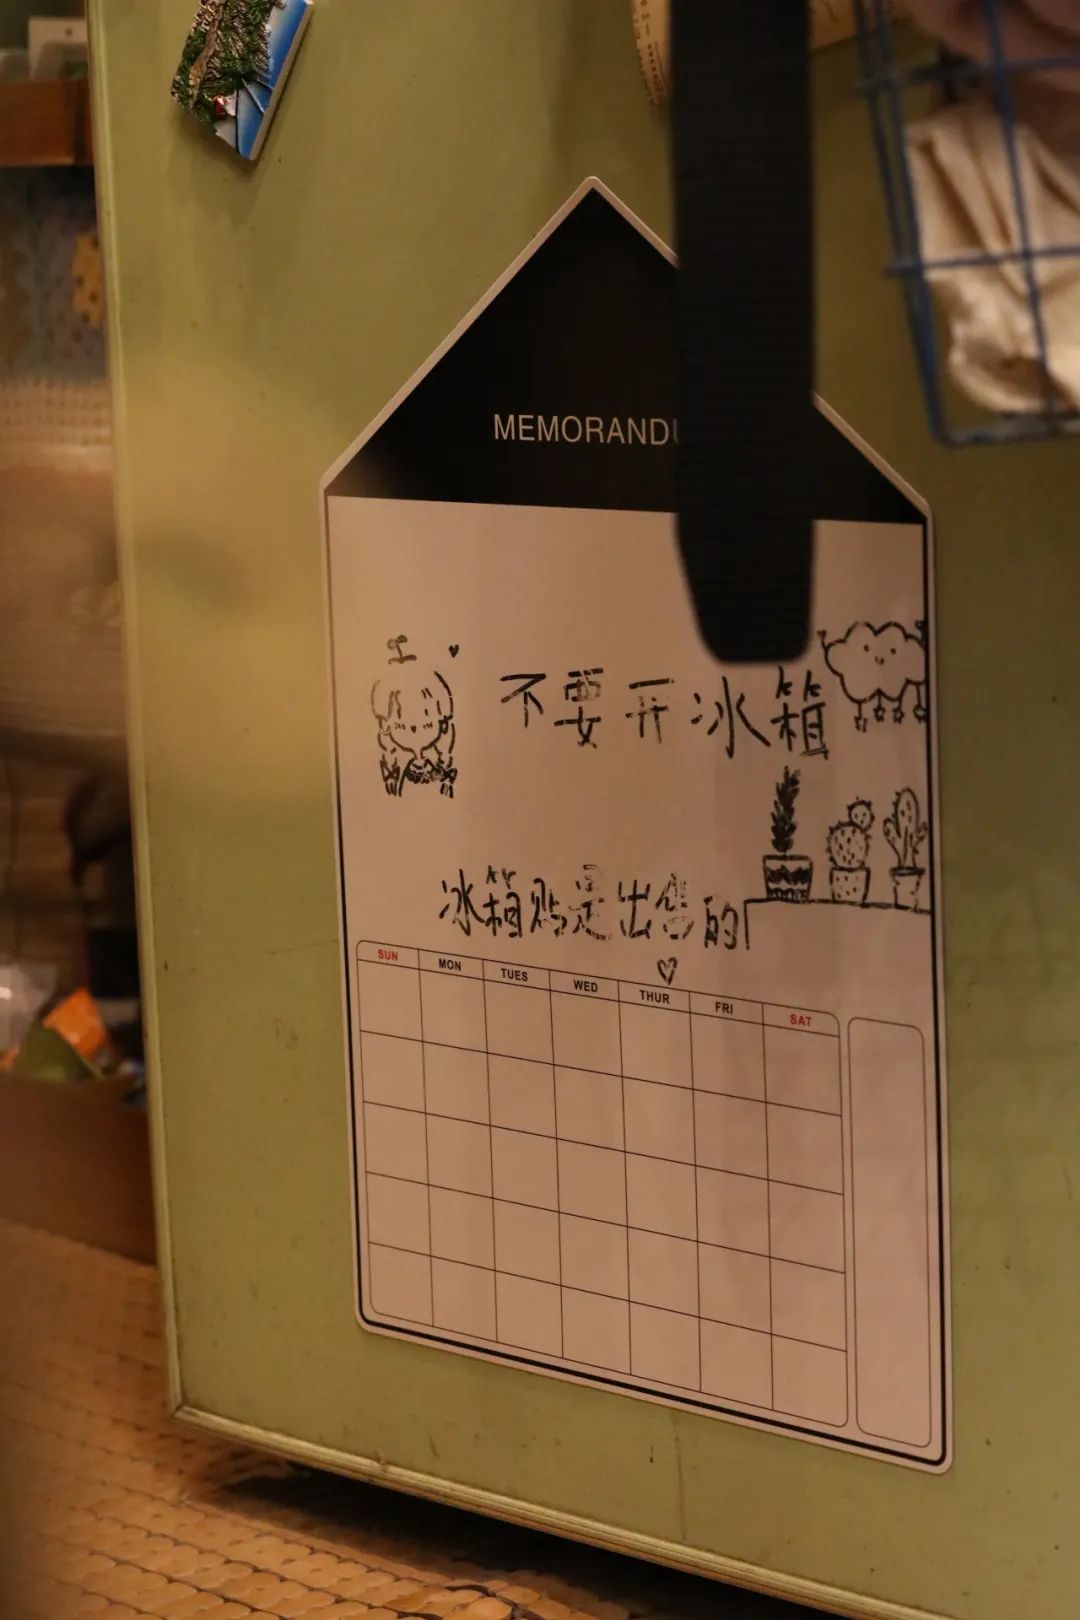 MEMORANDU
不要开冰箱
冰箱贴是出售的
SUN MON TUES WED THUR FRI SAT